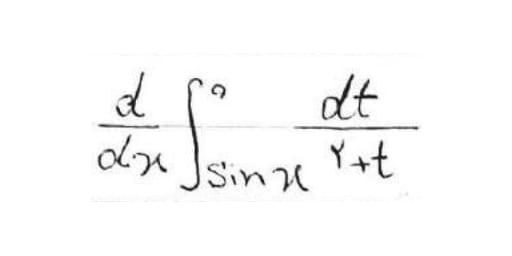 d/dx ∫_{sin x}^{۵} dt/(۲+t)